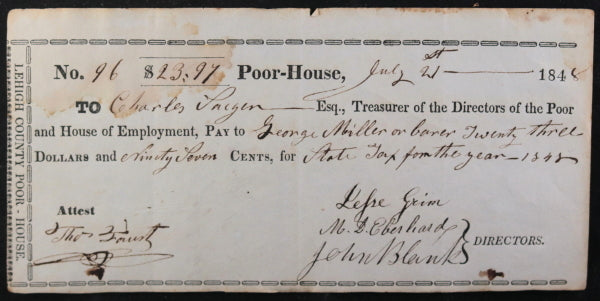 LEHIGH COUNTY POOR-HOUSE.
No. 96 $23.97 Poor-House, July 21st 1848
TO Charles Saeger Esq., Treasurer of the Directors of the Poor
and House of Employment, PAY to George Miller or barer Twenty three
DOLLARS and Ninety Seven CENTS, for State Tax for the year - 1848
Attest
Thos Faust
Jesse Grim
M. D. Eberhard
John Blank
DIRECTORS.